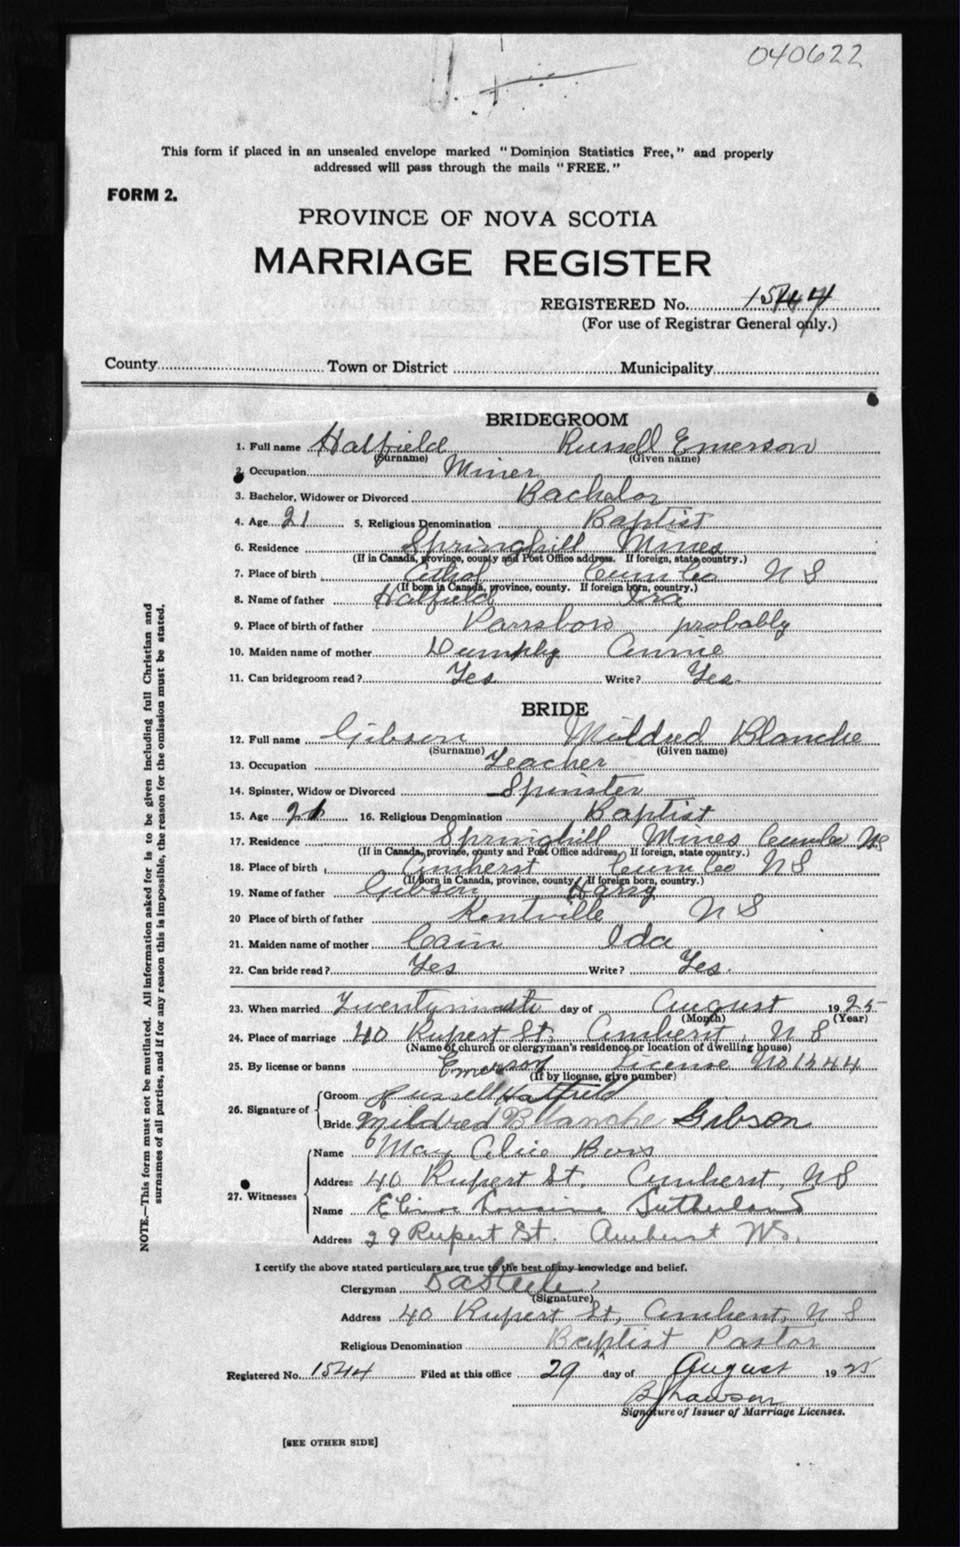 040622
This form if placed in an unsealed envelope marked "Dominion Statistics Free," and properly
addressed will pass through the mails "FREE."
FORM 2.
PROVINCE OF NOVA SCOTIA
MARRIAGE REGISTER
REGISTERED No. 1544
(For use of Registrar General only.)
County Town or District Municipality
BRIDEGROOM
1. Full name Hatfield Russell Emerson
(Surname) (Given name)
2. Occupation Miner
3. Bachelor, Widower or Divorced Bachelor
4. Age 21 5. Religious Denomination Baptist
6. Residence Springhill Mines
(If in Canada, province, county and Post Office address. If foreign, state country.)
7. Place of birth Cum Co N S
(If born in Canada, province, county. If foreign born, country.)
8. Name of father Hatfield Ira
9. Place of birth of father Parrsboro probably
10. Maiden name of mother Annie
11. Can bridegroom read? Yes Write? Yes.
BRIDE
12. Full name Gibson Mildred Blanche
(Surname) (Given name)
13. Occupation Teacher
14. Spinster, Widow or Divorced Spinster
15. Age 16. Religious Denomination Baptist
17. Residence Springhill Mines Cumb NS
(If in Canada, province, county and Post Office address. If foreign, state country.)
18. Place of birth Amherst Cum Co N S
(If born in Canada, province, county. If foreign born, country.)
19. Name of father Gibson Harry
20 Place of birth of father Kentville N S
21. Maiden name of mother Cain Ida
22. Can bride read? Yes Write? Yes.
23. When married Twentyninth day of August 1925
(Month) (Year)
24. Place of marriage 40 Rupert St, Amherst, N S
(Name of church or clergyman's residence or location of dwelling house)
25. By license or banns License No 1544
(If by license, give number)
26. Signature of Groom Russell Emerson Hatfield
Bride Mildred Blanche Gibson
27. Witnesses Name May Alice
Address 40 Rupert St. Amherst, N S
Name Sutherland
Address 29 Rupert St. Amherst N.S.
I certify the above stated particulars are true to the best of my knowledge and belief.
Clergyman Steele
(Signature)
Address 40 Rupert St, Amherst, N S
Religious Denomination Baptist Pastor
Registered No. 1544 Filed at this office 29 day of August 1925
Lawson
Signature of Issuer of Marriage Licenses.
[SEE OTHER SIDE]
NOTE.—This form must not be mutilated. All information asked for is to be given including full Christian and
surnames of all parties, and if for any reason this is impossible, the reason for the omission must be stated.